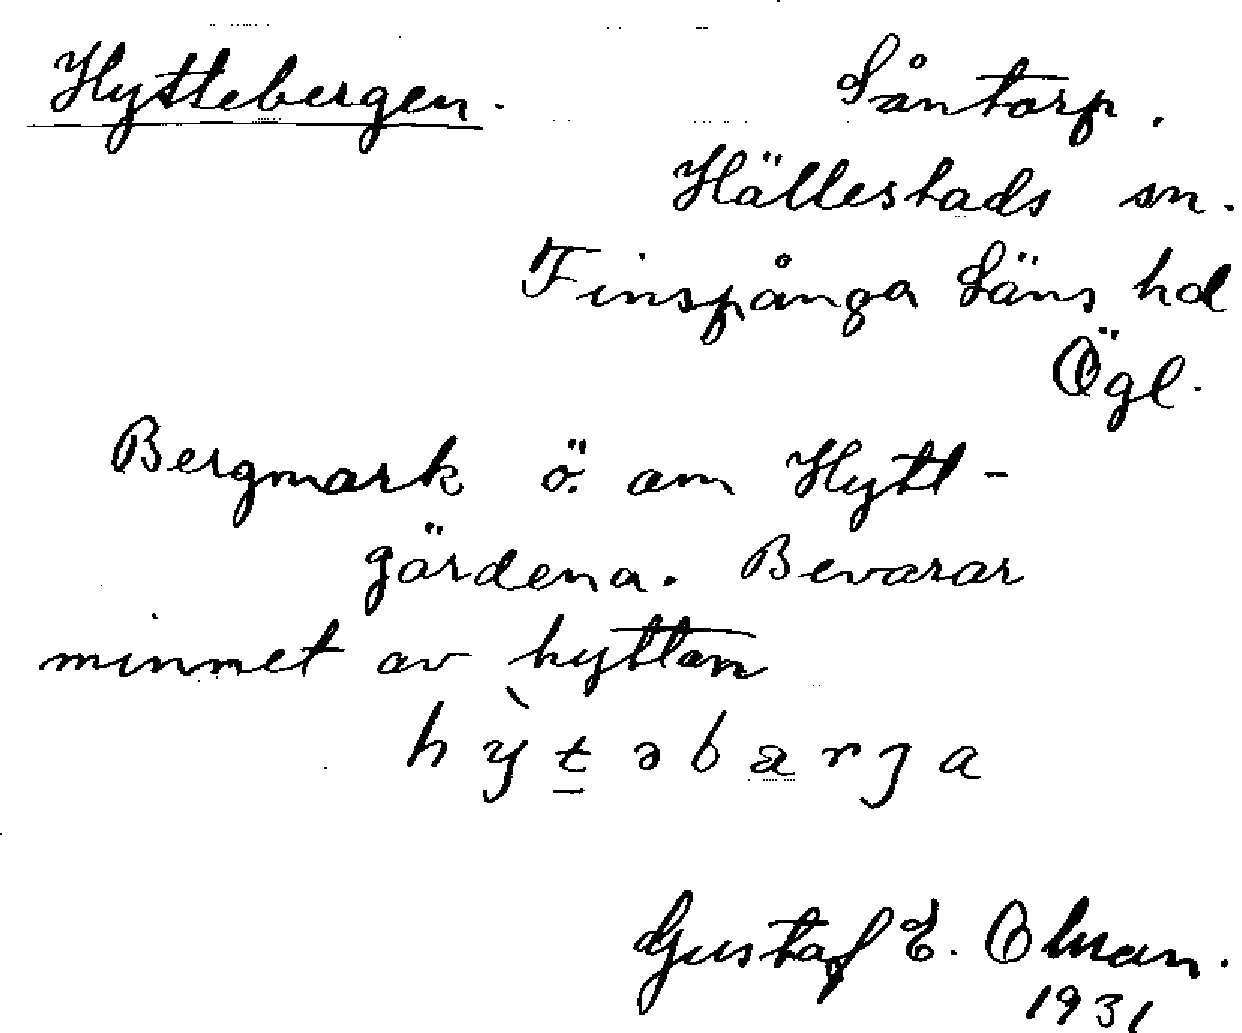 Hyttebergen. Såntorp.
Hällestads sn.
Finspånga läns hd
Ögl.
Bergmark ö. om Hytt-
gärdena. Bevarar
minnet av hyttan
hỳt̲əbærja
Gustaf E.
1931